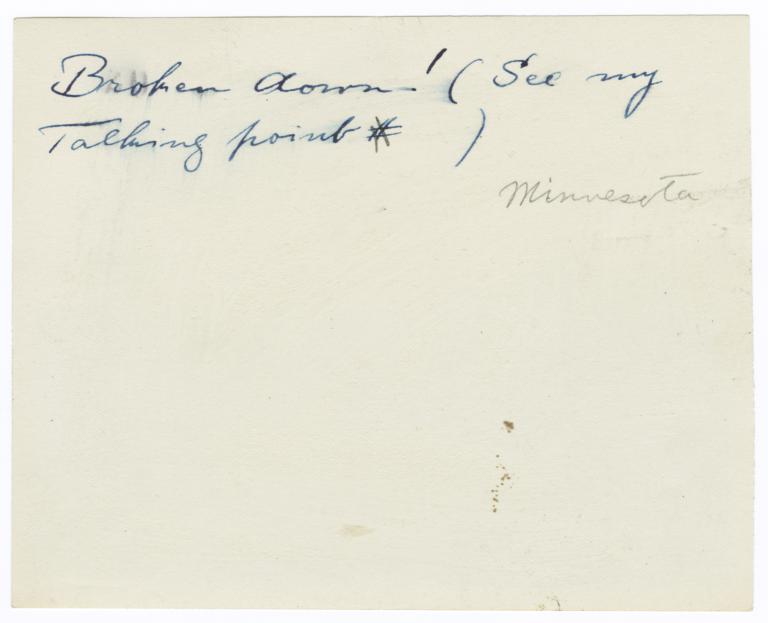 Broken down! (See my
Talking point #     )
Minnesota